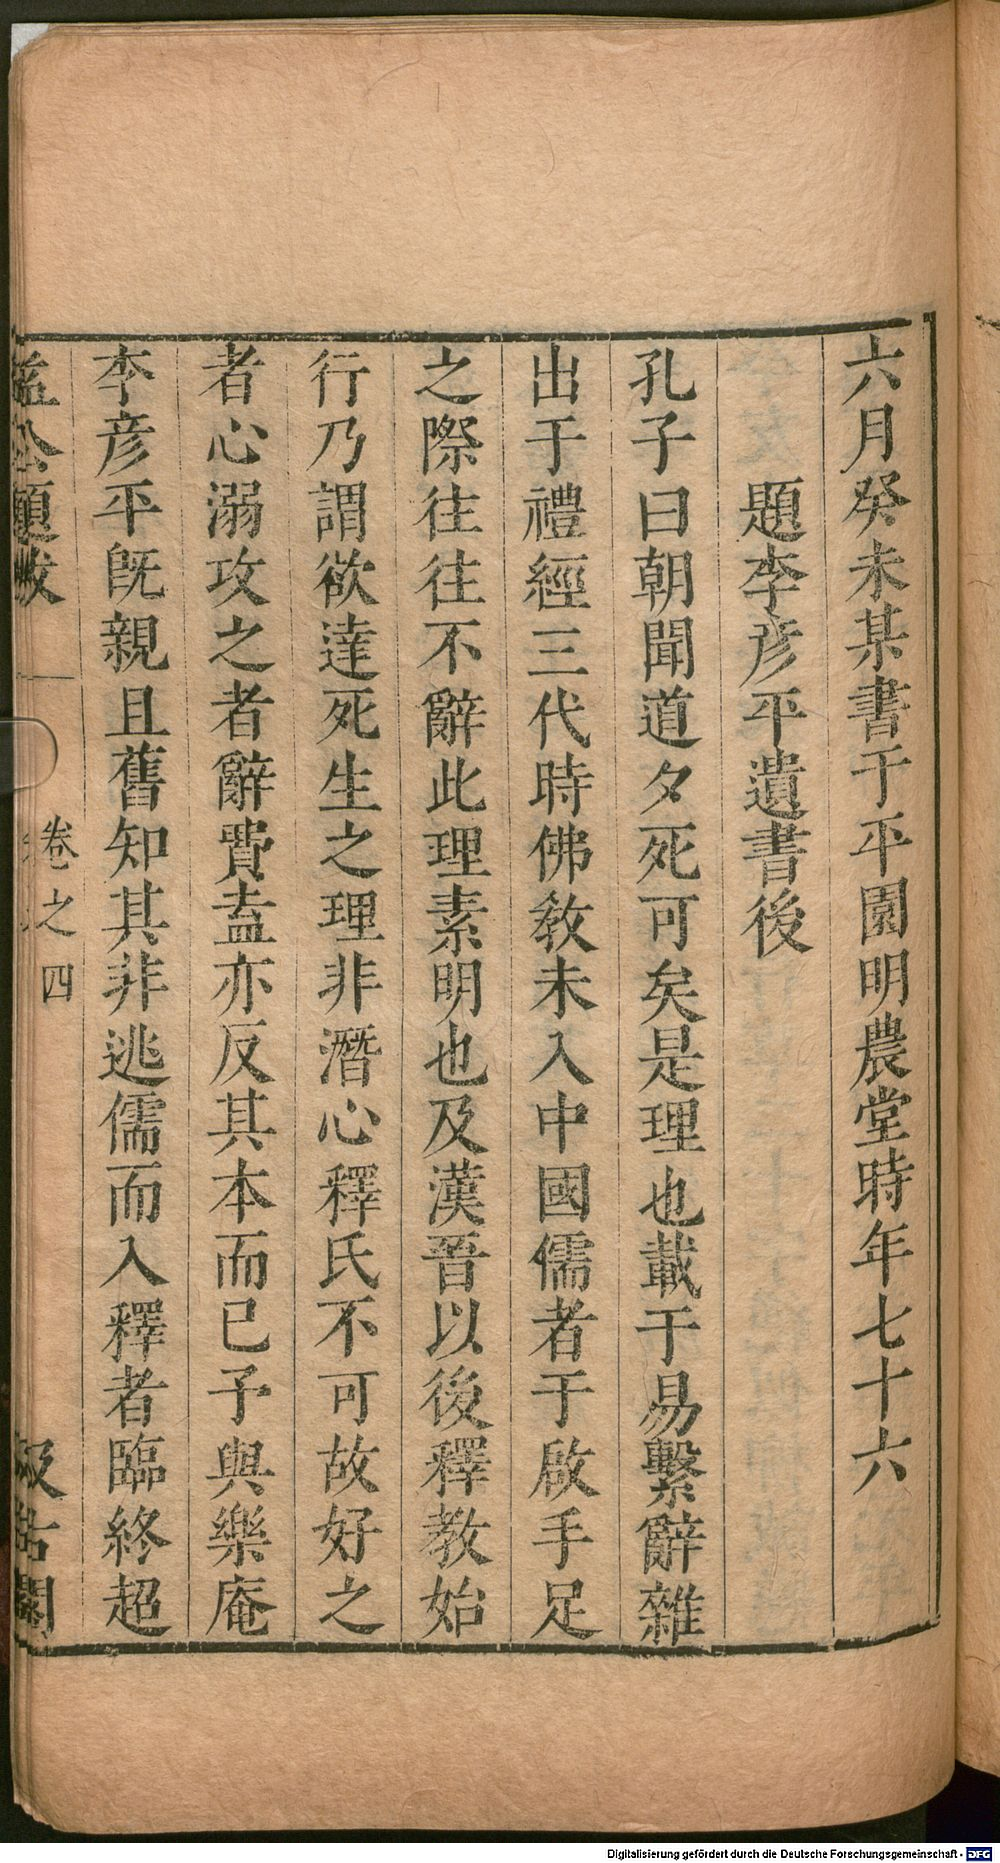 六月癸未某書于平園明農堂時年七十六
題李彦平遺書後
孔子曰朝聞道夕死可矣是理也載于易繫辭雜
出于禮經三代時佛敎未入中國儒者于啟手足
之際往往不辭此理素明也及漢晉以後釋教始
行乃謂欲達死生之理非潛心釋氏不可故好之
者心溺攻之者辭費盍亦反其本而已予與樂庵
李彦平旣親且舊知其非逃儒而入釋者臨終超
益公題跋
卷之四
汲古閣
Digitalisierung gefördert durch die Deutsche Forschungsgemeinschaft - DFG